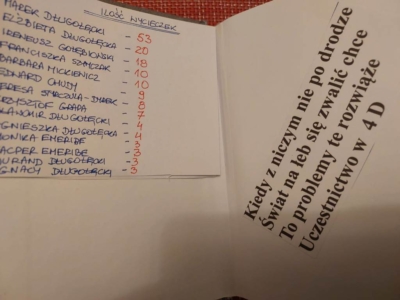 ILOŚĆ WYCIECZEK
MAREK DŁUGOŁĘCKI - 53
ELŻBIETA DŁUGOŁĘCKA - 20
IRENEUSZ GOŁĘBIOWSKI - 18
FRANCISZKA SZAŁCZAK - 10
BARBARA MICKIEWICZ - 10
EDWARD CHUDY - 9
TERESA - 8
KRZYSZTOF GRAPA - 7
SŁAWOMIR DŁUGOŁĘCKI - 4
AGNIESZKA DŁUGOŁĘCKA - 4
MONIKA EMERIBE - 3
KACPER EMERIBE - 3
JURAND DŁUGOŁĘCKI - 3
IGNACY DŁUGOŁĘCKI - 3
Kiedy z niczym nie po drodze
Świat na łeb się zwalić chce
To problemy te rozwiąże
Uczestnictwo w 4 D